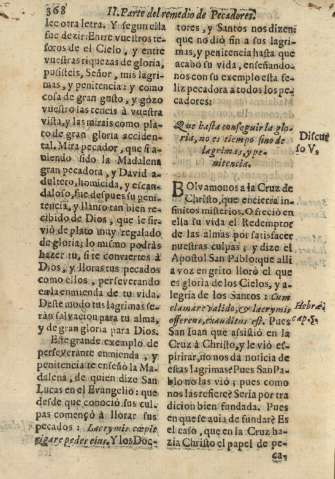 368 II. Parte del remedio de Pecadores.
lee otra letra. Y segun ella
fue dezir: Entre vuestros te-
soros de el Cielo, y entre
vuestras riquezas de gloria,
pusisteis, Señor, mis lagri-
mas, y penitencia: y como
cosa de gran gusto, y gozo
vuestro las teneis à vuestra
vista, y las mirais como pla-
to de gran gloria acciden-
tal. Mira pecador, que si a-
uiendo sido la Madalena
gran pecadora, y David a-
dultero, homicida, y escan-
daloso, fue despues su peni-
tencia, y llanto tan bien re-
cibido de Dios, que le sir-
viò de plato muy regalado
de gloria; lo mismo podràs
hazer tu, si te conviertes à
Dios, y lloras tus pecados
como ellos, perseverando
en la enmienda de tu vida.
Deste modo tus lagrimas se-
ràn salvacion para tu alma,
y de gran gloria para Dios.
Este grande exemplo de
perseverante enmienda, y
penitencia te enseño la Ma-
dalena, de quien dize San
Lucas en el Evangelio: que
desde que conociò sus cul-
pas començò à llorar sus
pecados: Lacrymis cœpit
rigare pedes eius. Y los Doc-
tores, y Santos nos dizen
que no diò fin a sus lagri-
mas, y penitencia hasta que
acabò su vida, enseñando-
nos con su exemplo esta fe-
liz pecadora a todos los pe-
cadores.
Que hasta conseguir la glo-
ria, no es tiempo sino de
lagrimas, y pe-
nitencia.
Discur
so V.
BOlvamonos a la Cruz de
Christo, que encierra in-
finitos misterios. Ofreciò en
ella su vida el Redemptor
de las almas por satisfacer
nuestras culpas; y dize el
Apostol San Pablo: que alli
a voz en grito llorò el que
es gloria de los Cielos, y a-
legria de los Santos: Cum
clamore valido, & lacrymis
offerens, exauditus est. Pues
San Iuan que assistiò en la
Cruz à Christo, y le viò es-
pirar, no nos dà noticia de
estas lagrimas? Pues San Pa-
blo no las viò; pues como
nos las refiere? Seria por tra
dicion bien fundada. Pues
en que se auia de fundar? Es
el caso, que en la Cruz ha-
zia Christo el papel de pe-
Hebræ.
cap. 5.
ca-